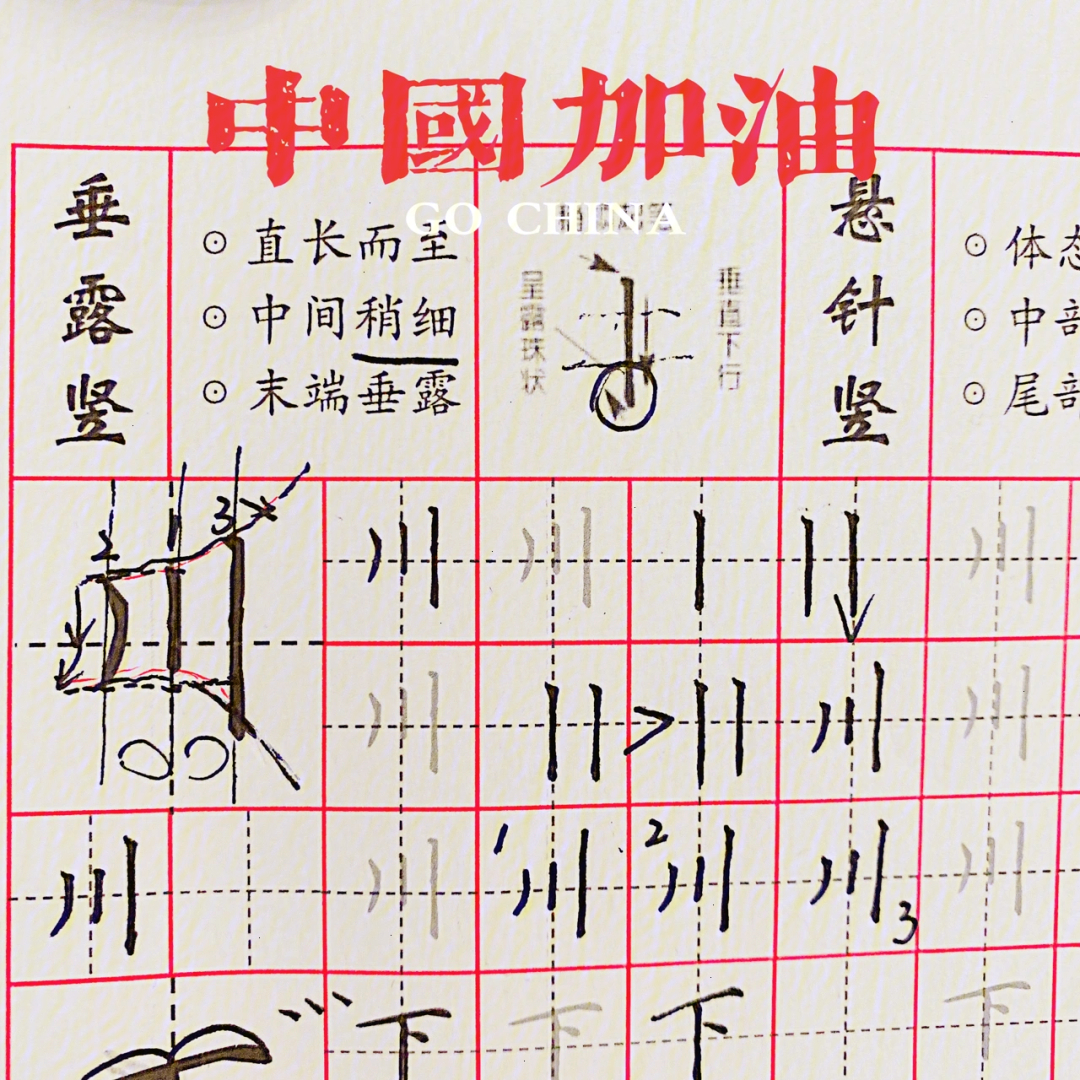 中國加油
GO CHINA
垂露竖
直长而至
中间稍细
末端垂露
呈露珠状
垂直下行
悬针竖
体态
中部
尾部
2 1 3
川 川 川
川 川 川
川 川 1 川 2 川 川 3 川
下 下 下 下